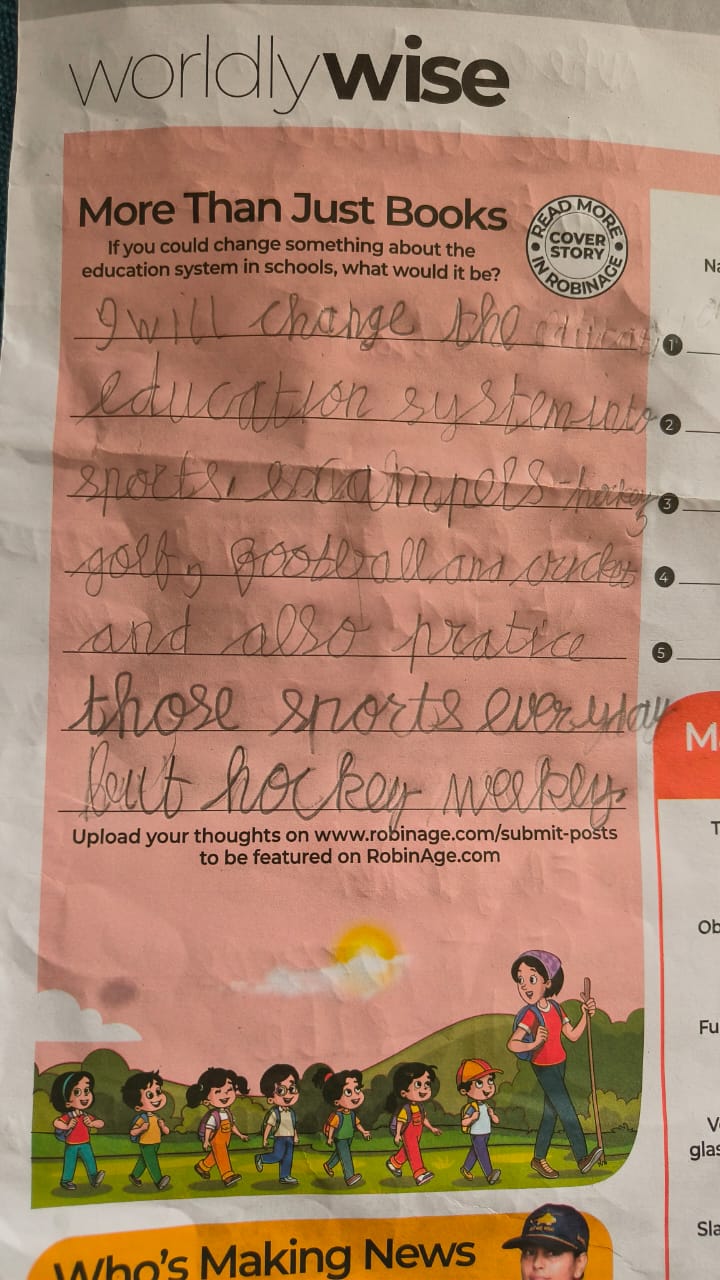 worldlywise
More Than Just Books
If you could change something about the
education system in schools, what would it be?
READ MORE
COVER
STORY
IN ROBINAGE
I will change the
education system into
sports. exampels - hockey
golf, football and cricket
and also pratice
those sports everyday
but hockey weekly.
Upload your thoughts on www.robinage.com/submit-posts
to be featured on RobinAge.com
Who's Making News
1
2
3
4
5